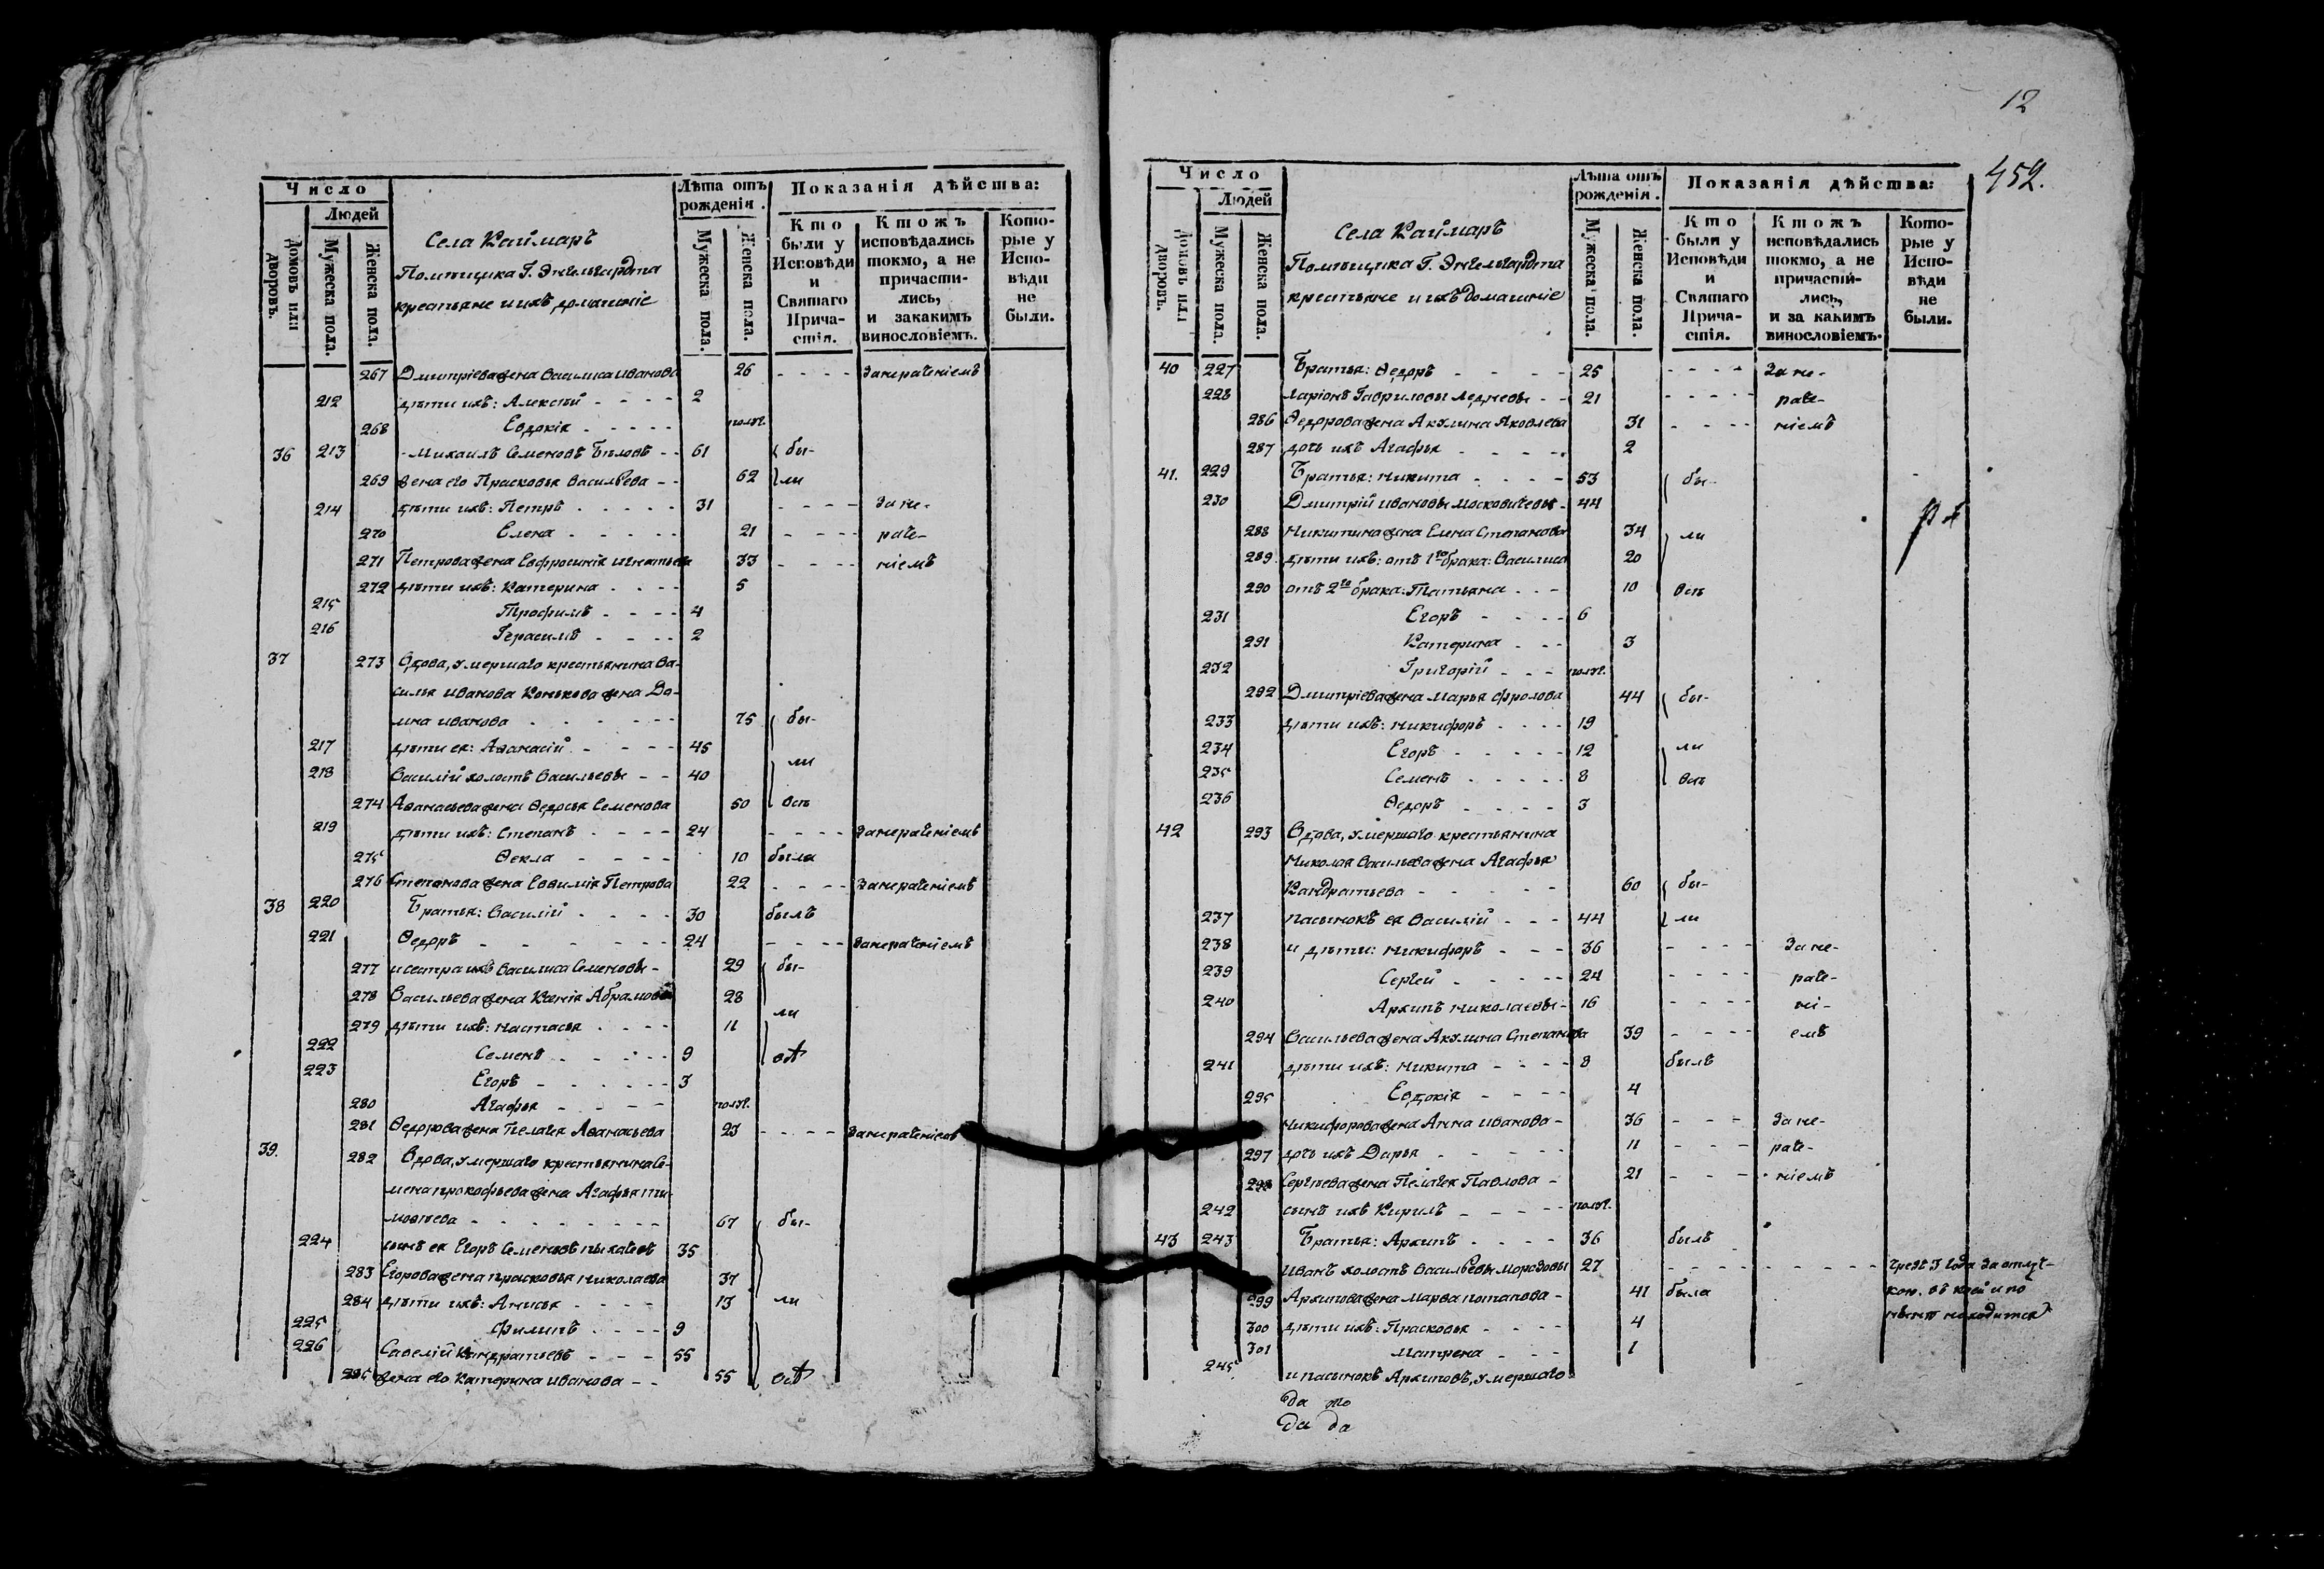 12
452.
Число
Людей
Домовъ или дворовъ.
Мужеска пола.
Женска пола.
Села Каймаръ
Помѣщика Г. Энгельгардта
крестьяне и ихъ домашніе
Лѣта отъ рожденія.
Мужеска пола.
Женска пола.
Показанія дѣйства:
Кто были у Исповѣди и Святаго Причастія.
Ктожъ исповѣдались токмо, а не причастились, и закакимъ винословіемъ.
Которые у Исповѣди не были.
267 Дмитріева жена Василиса Иванова 26 - - - - за нераченіемъ
212 дѣти ихъ: Алексѣй - - - - 2
268 Евдокія - - - - - полуг.
36 213 Михаилъ Семеновъ Бѣловъ - - 61 бы-
269 жена его Прасковья Васильева - - 62 ли
214 дѣти ихъ: Петръ - - - - - 31 - - - - За не-
270 Елена - - - - - 21 - - - - раче-
271 Петрова жена Евфросинія Игнатьева 33 - - - - ніемъ
272 дѣти ихъ: Катерина - - - - 5
215 Трофимъ - - - - 4
216 Герасимъ - - - - 2
37 273 Вдова, умершаго крестьянина Ва-
силья Иванова Конькова жена До-
мна Иванова - - - - - - 75 бы-
217 дѣти ея: Аѳанасій - - - - 45
218 Василій холостъ Васильевы - - 40 ли
274 Аѳанасьева жена Ѳедосья Семенова 50 всѣ
219 дѣти ихъ: Степанъ - - - - 24 - - - - за нераченіемъ
275 Ѳекла - - - - 10 была
276 Степанова жена Евѳимія Петрова 22 - - - - За нераченіемъ
38 220 Братья: Василій - - - - 30 былъ
221 Ѳедоръ - - - - - - - 24 - - - - за нераченіемъ
277 и сестра ихъ Василиса Семеновы - 29 бы-
278 Васильева жена Ксенія Абрамова 28 ли
279 дѣти ихъ: Настасья - - - - 11
222 Семенъ - - - - - 9
223 Егоръ - - - - - - 3
280 Агафья - - - - - полуг.
281 Ѳедорова жена Пелагея Аѳанасьева 23 - - - - за нераченіемъ
39. 282 Вдова, умершаго крестьянина Се-
мена Прокофьева жена Агафья Ти-
моѳеева - - - - - - - - 67 бы-
224 сынъ ея Егоръ Семеновъ 35
283 Егорова жена Прасковья Николаева 37
284 дѣти ихъ: Анисья - - - - 13 ли
225 Филипъ - - - - 9
226 Савелій Кандратьевъ - - - 55
285 жена его Катерина Иванова - - 55
Число
Людей
Домовъ или дворовъ.
Мужеска пола.
Женска пола.
Села Каймаръ
Помѣщика Г. Энгельгардта
крестьяне и ихъ домашніе
Лѣта отъ рожденія.
Мужеска пола.
Женска пола.
Показанія дѣйства:
Кто были у Исповѣди и Святаго Причастія.
Ктожъ исповѣдались токмо, а не причастились, и за какимъ винословіемъ.
Которые у Исповѣди не были.
40 227 Братья: Ѳедоръ - - - - 25 - - - - За не-
228 Ларіонъ Гавриловы Ледневы - - 21 - - - - раче-
286 Ѳедорова жена Акулина Яковлева 31 - - - - ніемъ
287 дочь ихъ Агафья - - - - - 2
41. 229 Братья: Никита - - - - 53 бы-
230 Дмитрій Ивановы Московичевы - 44
288 Никитина жена Елена Степанова 34 ли
289 дѣти ихъ: отъ 1го брака: Василиса 20
290 отъ 2го брака: Татьяна - - - 10 всѣ
231 Егоръ - - - - 6
291 Катерина - - - 3
232 Григорій - - - полуг.
292 Дмитріева жена Марья Фролова 44 бы-
233 дѣти ихъ: Никифоръ - - - - 19
234 Егоръ - - - - - 12 ли
235 Семенъ - - - - - 8 всѣ
236 Ѳедоръ - - - - 3
42 293 Вдова, умершаго крестьянина
Николая Васильева жена Агафья
Кандратьева - - - - - 60 бы-
237 пасынокъ ея Василій - - - 44 ли
238 и дѣти: Никифоръ - - - 36 - - - - За не-
239 Сергѣй - - - - - 24 - - - - раче-
240 Архипъ Николаевы - 16 - - - - ні-
294 Васильева жена Акулина Степанова 39 - - - - емъ
241 дѣти ихъ: Никита - - - - 8 былъ
295 Евдокія - - - - 4
Никифорова жена Анна Иванова - 36 - - - За не-
297 дочь ихъ Дарья - - - - - 11 - - - раче-
298 Сергѣева жена Пелагея Павлова - 21 - - - ніемъ
242 сынъ ихъ Кирилъ - - - - - полуг.
43 243 Братья: Архипъ - - - - 36 былъ
Иванъ холостъ Васильевы Мородовы 27 - - - - - - - - - чрезъ 3 года за отлуч-
299 Архипова жена Марѳа Потапова - 41 была кою. въ коей и по
300 дѣти ихъ: Прасковья - - - - 4 находится
301 Матрена - - - 1
245 и пасынокъ Архиповъ, умершаго